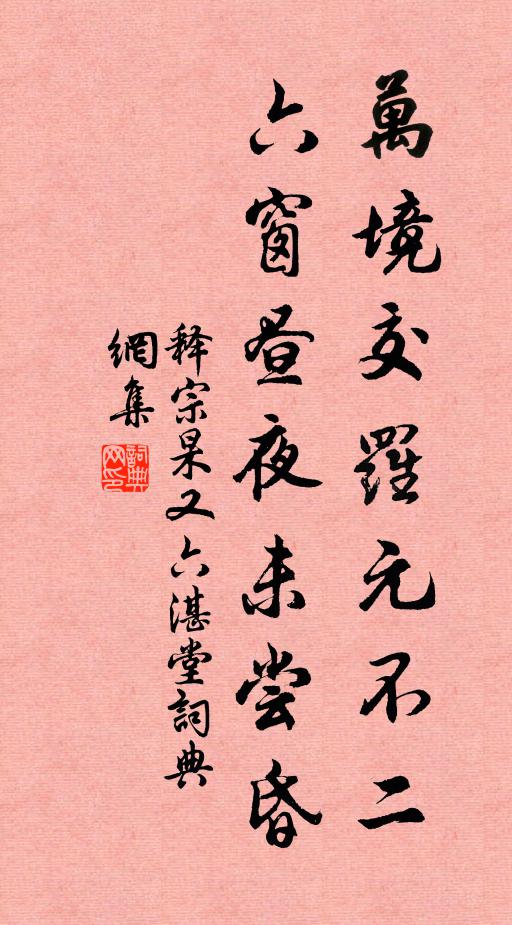 萬境交羅元不二
六窗昼夜未尝昏
释宗杲又六湛堂詞典
網集
詞典网印